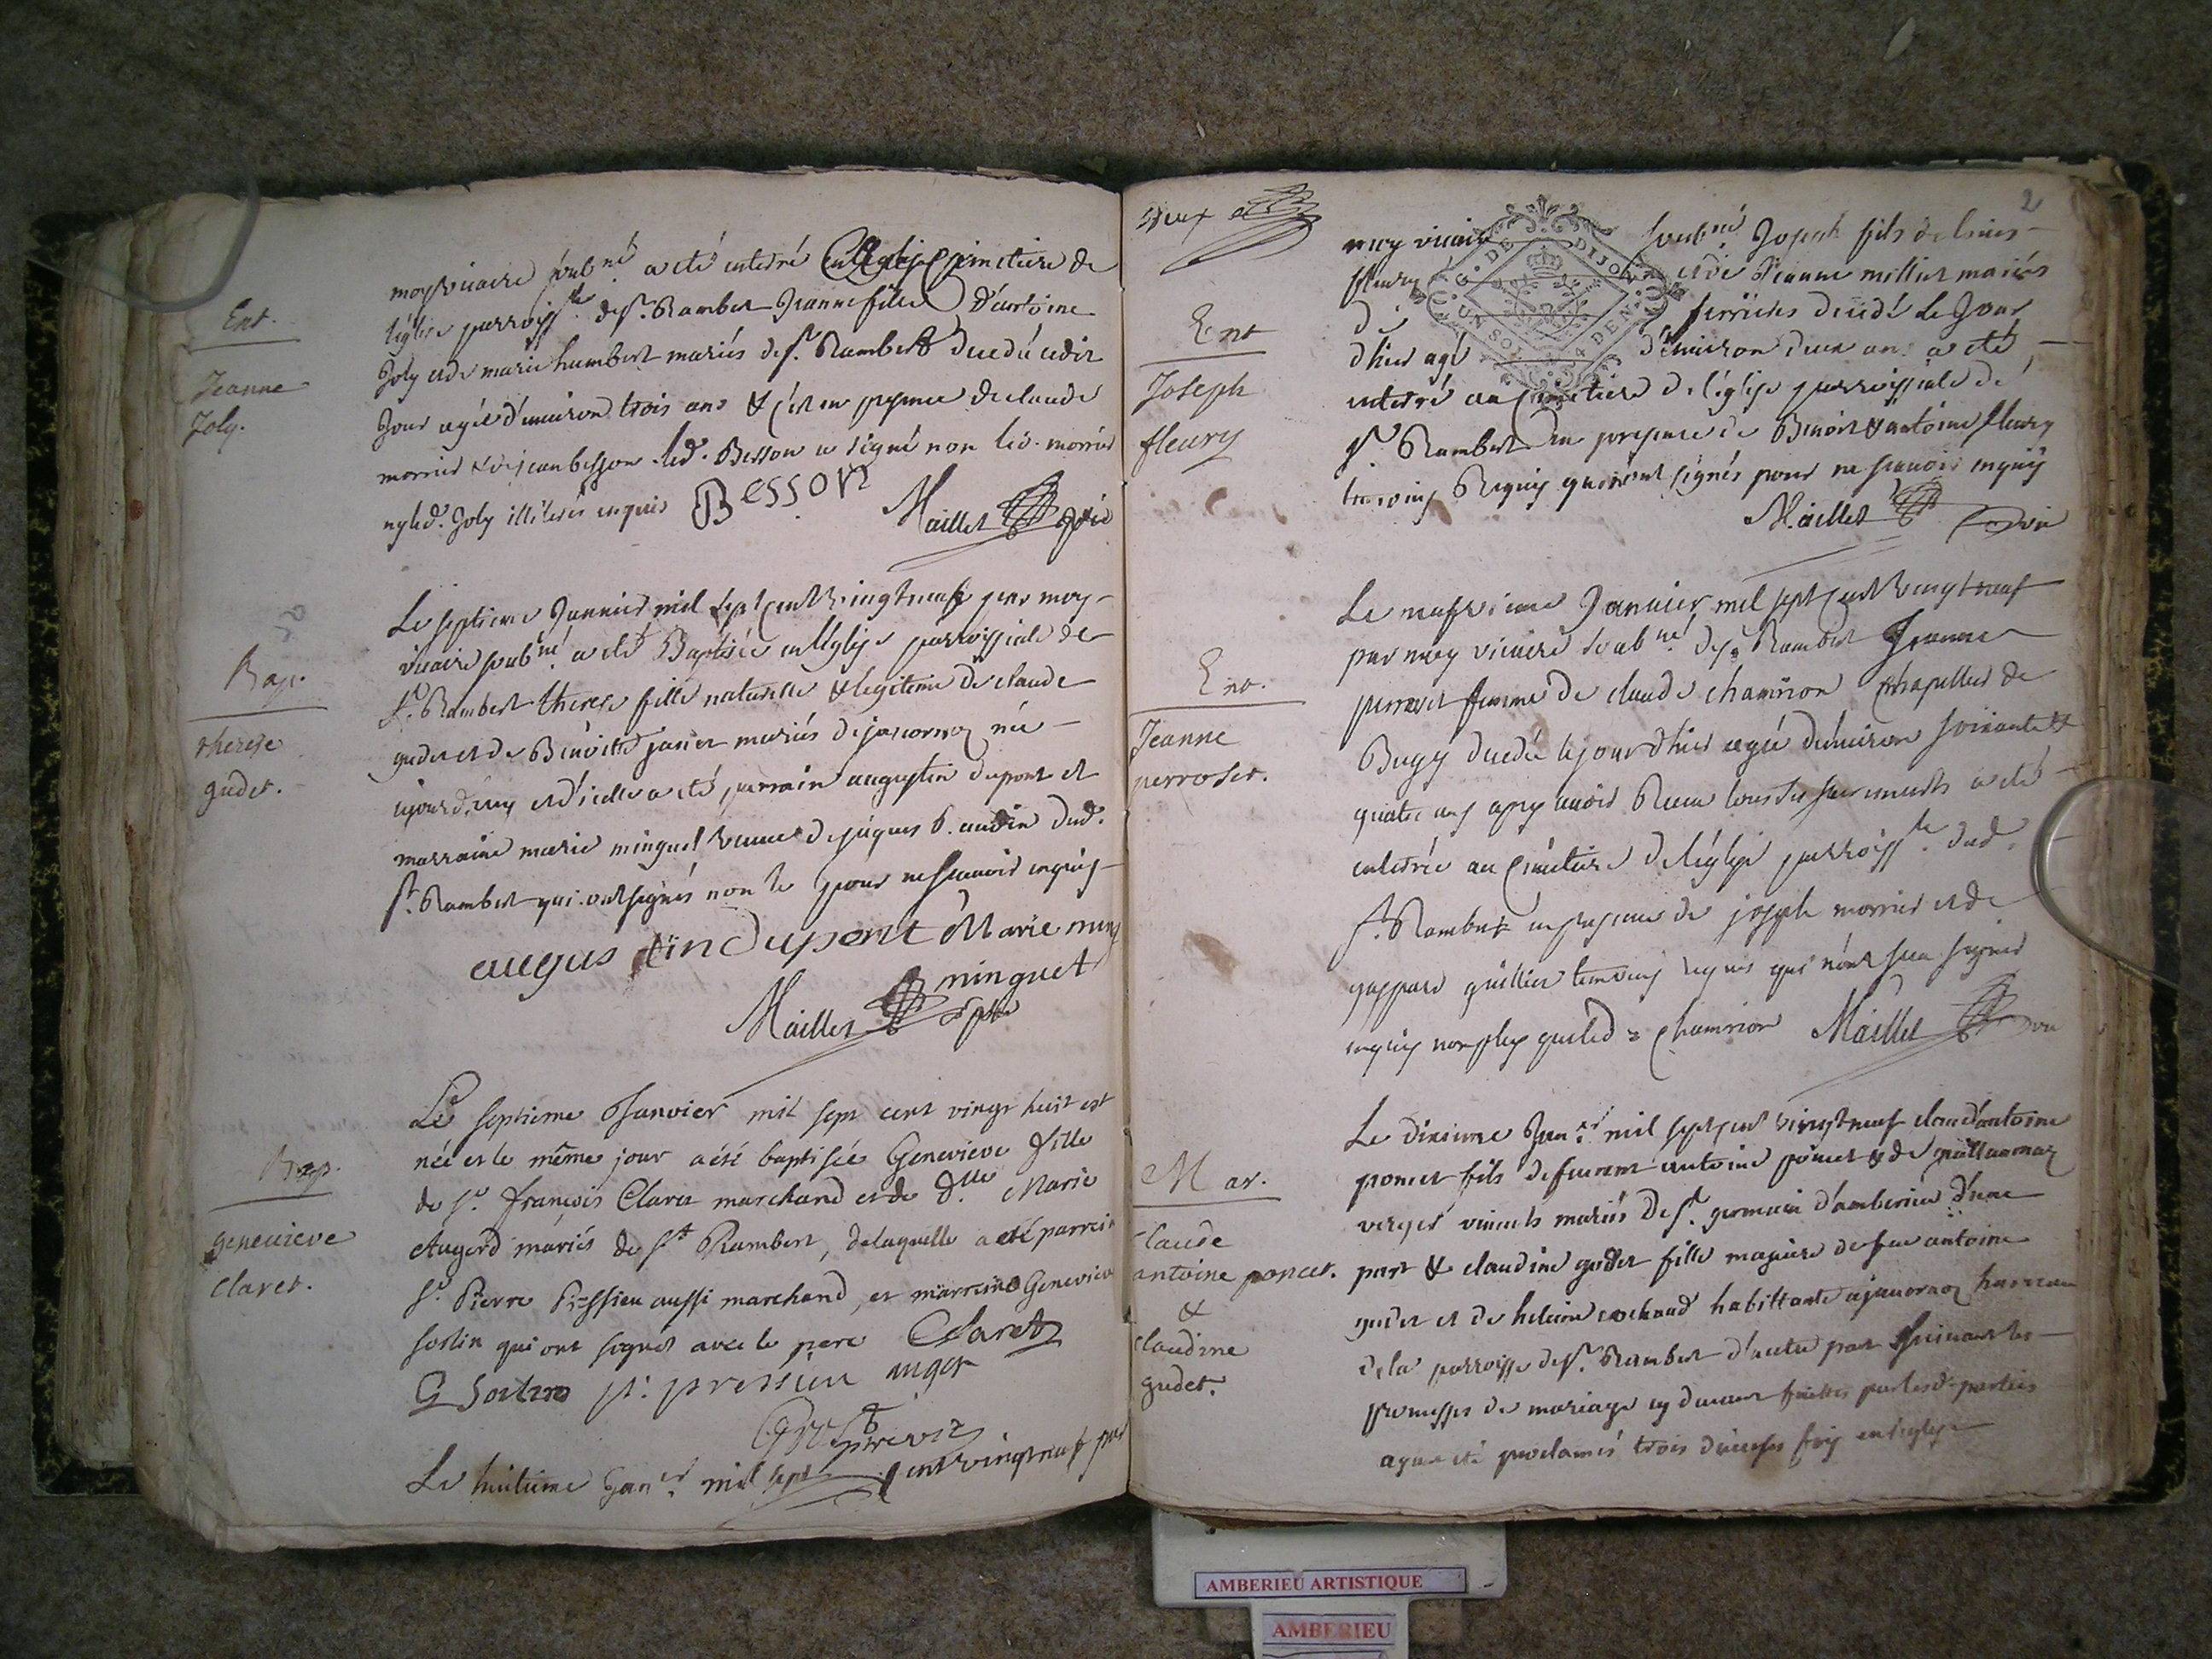 Ent.
Jeanne
Joly.
moy vicaire soubné a été enterré Cimetiere de
léglise parroissle de st. Rambert Jeanne fille d'antoine
Joly et de marie humbert mariés de st. Rambert decedé
Jour agée d'environ trois ans & ce en presence de claude
morrier & de jean besson led. Besson a signé non led. morrier
ny led. Joly illiterés enquis Besson Maillet
Bap.
therese
gudet.
Le septieme Janvier mil sept cent vingt neuf par moy
vicaire soubné a été Baptisée en léglise parroissiale de
st. Rambert therese fille naturelle & legitime de claude
gudet et de Benoitte mariés de javornoz née
aujourd'huy et d'icelle a été parrain augustin dupont et
marraine marie minguet veuve de jaques dud.
st. Rambert qui ont signés non le pour ne scavoir enquis
augustin dupont Marie
ninguet
Maillet
Bap.
genevieve
claret.
Le septieme Janvier mil sept cent vingt huit est
née et le même jour a été baptisée Genevieve fille
de sr. françois Claret marchand et de dlle Marie
Augerd mariés de st Rambert, de laquelle a été parrein
sr. Pierre Pressieu aussi marchand, et marreine Genevieve
sostin qui ont signés avec le pere Claret
G Sostin p. pressieu auger
Le huitieme Janer mil sept cent vingt neuf par
2
deux
Ent
Joseph
fleury
moy vicaire soubné Joseph fils de
fleury et de Jeanne millier mariés
de decedé le Jour
d'hier agé d'environ deux ans a été
enterré au Cimetiere de léglise parroissiale de
st. Rambert en presence de Benoit & antoine fleury
temoins Requis qui n'ont signés pour ne scavoir enquis
Maillet
G. DE DIJON
UN SOL 4 DEN.
Ent.
Jeanne
perroset.
Le neufvieme Janvier mil sept cent vingt neuf
par moy vicaire soubné de st Rambert Jeanne
femme de claude chamrion chapellier de
Bugey decedée le jour d'hier agée d'environ soixante &
quatre ans apres avoir Receu tous les sacrements a été
enterrée au Cimetiere de léglise parroissle dud.
st. Rambert en presence de joseph morrier et de
gaspard guillier temoins requis qui n'ont sceu signer
enquis non plus que led. chamrion Maillet
Mar.
Claude
antoine poncet.
&
Claudine
gudet.
Le dixieme Janer mil sept cent vingt neuf claude antoine
poncet fils de feurent antoine poncet & de
verger vivents mariés de st. germain d'amberieu d'une
part & claudine gudet fille majeure de feu antoine
gudet et de helaine cochaud habittante a javornoz hameau
de la parroisse de st. Rambert d'autre part suivant les
promesses de mariage cy devant faittes par lesd. parties
ayant eté proclamés trois diverses fois en leglise
AMBERIEU ARTISTIQUE
AMBERIEU